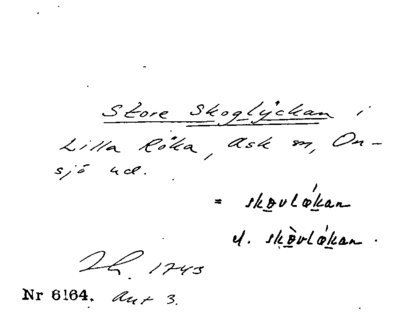 Store Skoglyckan i
Lilla Röka, Ask sn, On-
sjö hd.
= skovlökan
l. skòvlökan.
1743
Nr 6164. Ant 3.